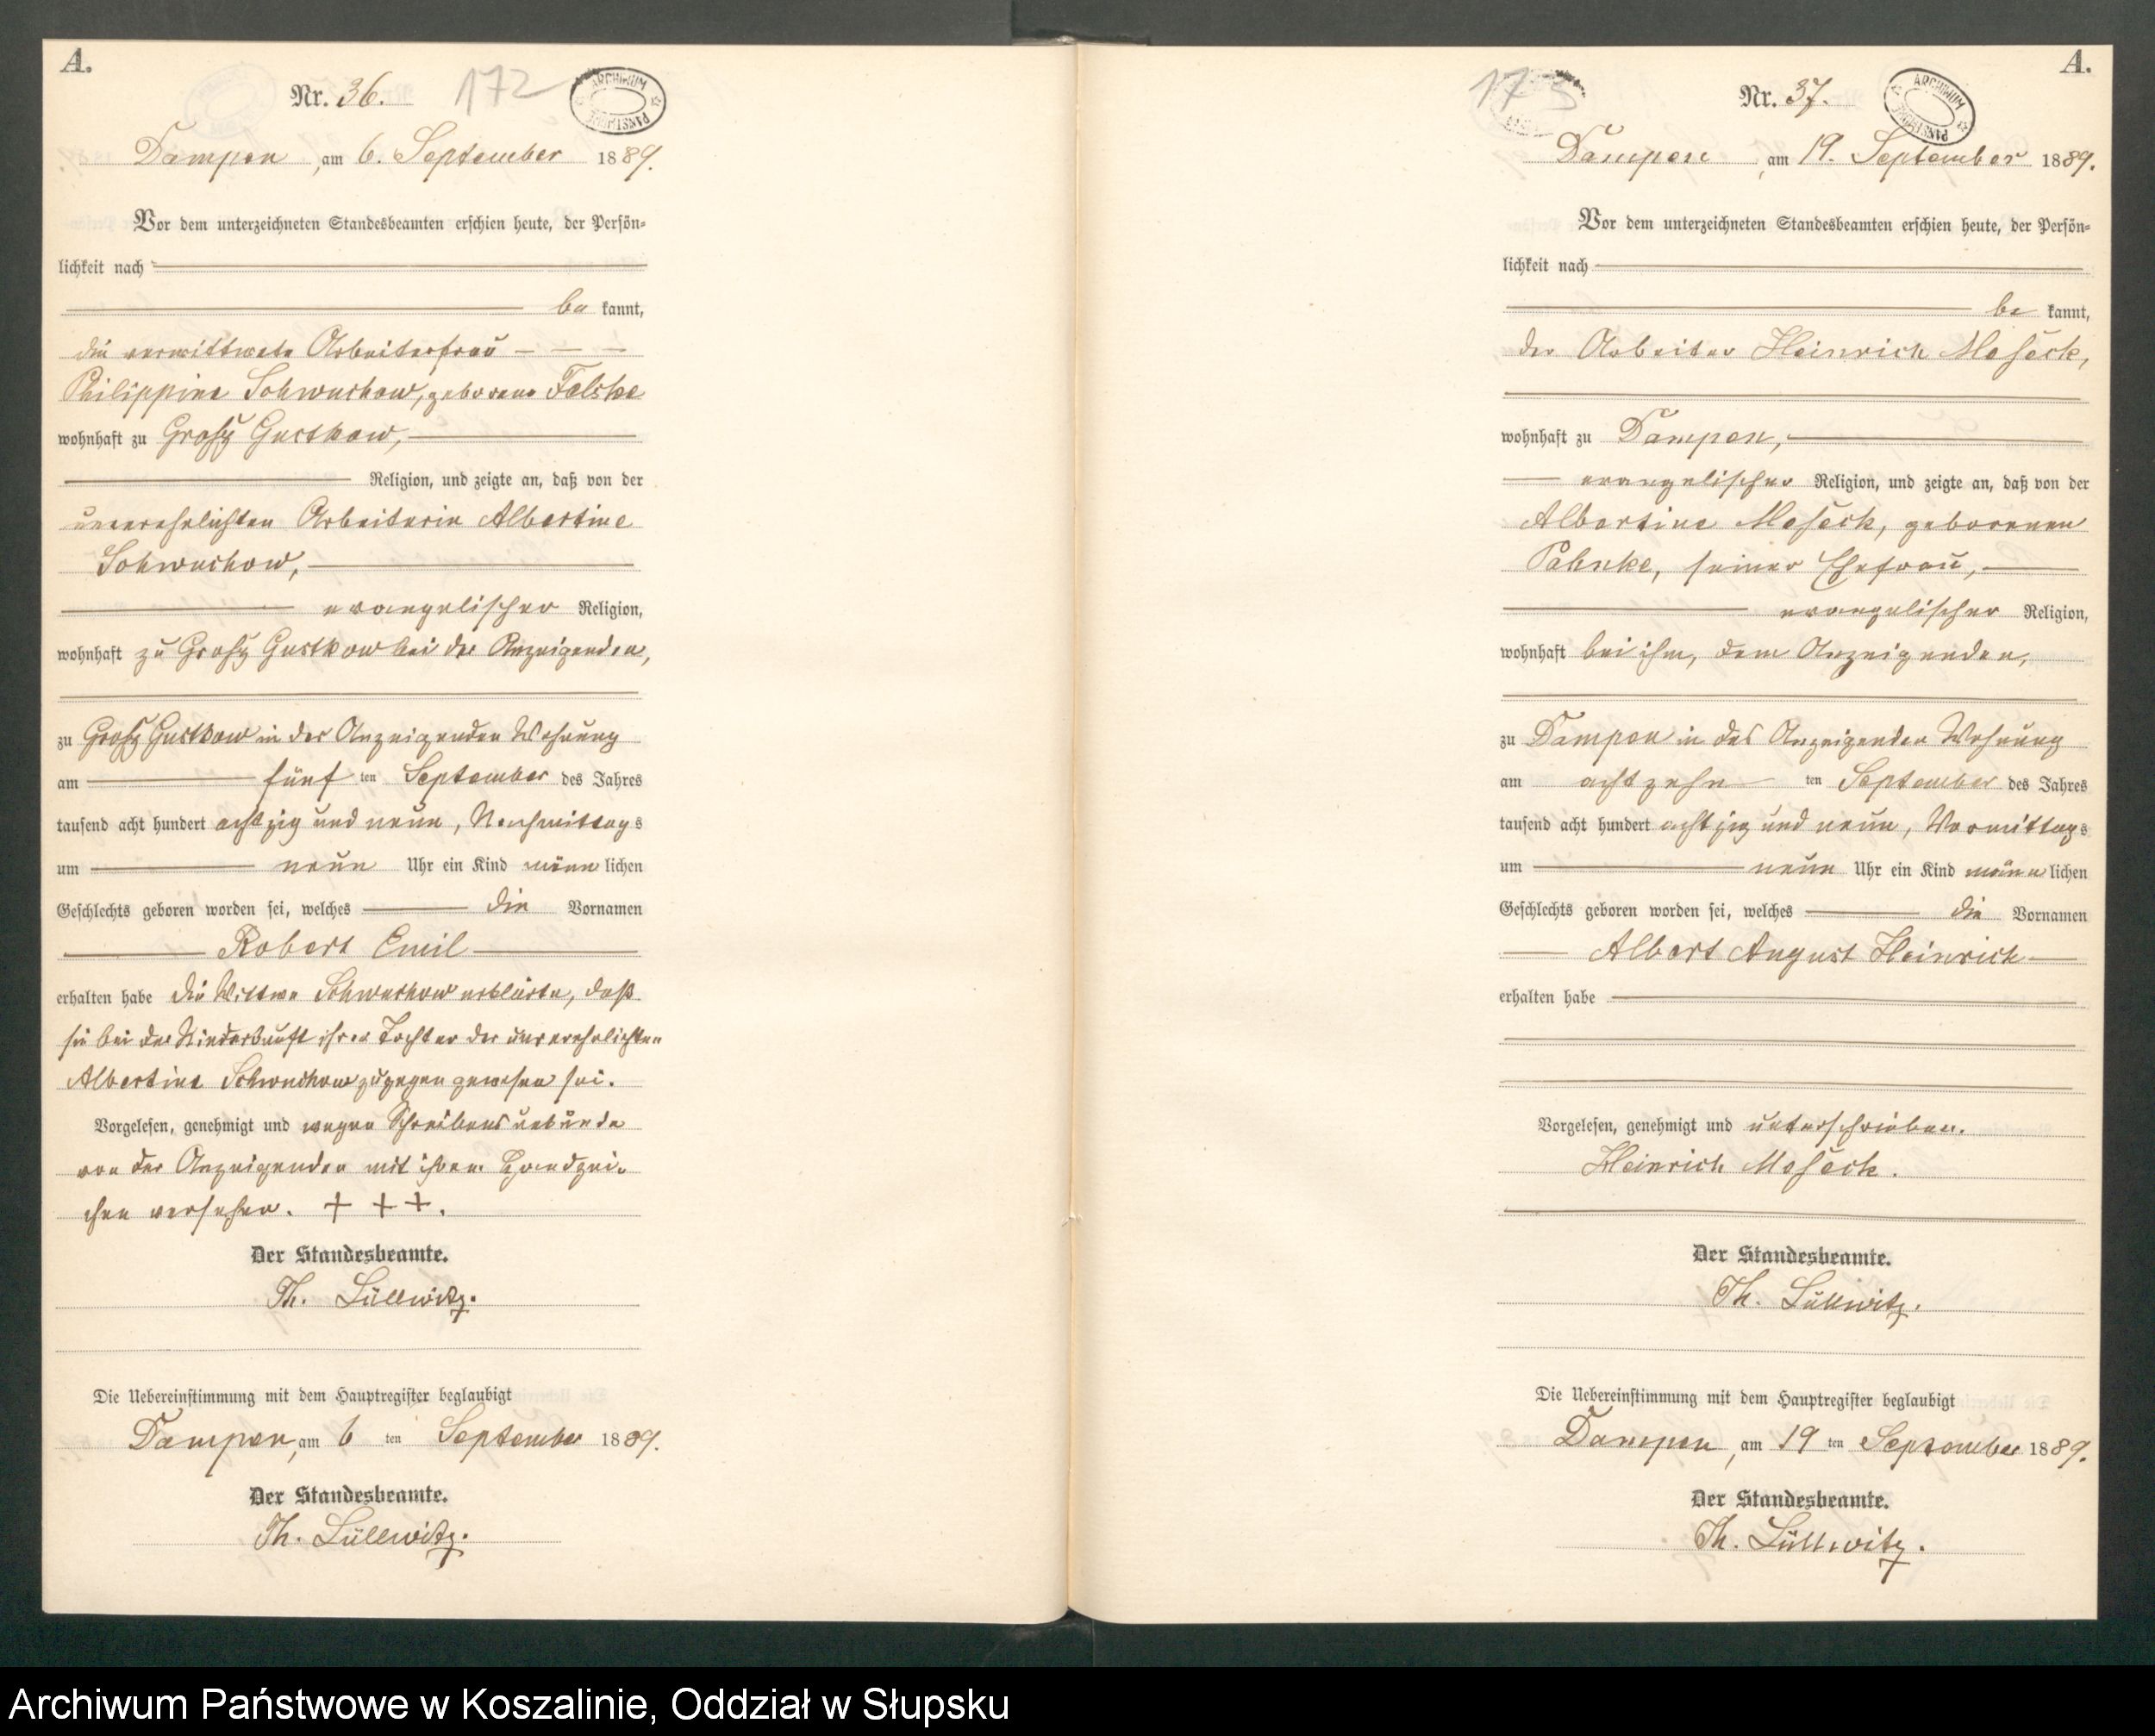 A.
Nr. 36.
172
ARCHIWUM PAŃSTWOWE
Dampen, am 6. September 1889.
Vor dem unterzeichneten Standesbeamten erschien heute, der Persön=
lichkeit nach
be kannt,
die verwittwete Arbeiterfrau
Philippine Schwuchow, geborene Felske
wohnhaft zu Groß Gustkow,
Religion, und zeigte an, daß von der
unverehelichten Arbeiterin Albertine
Schwuchow,
evangelischer Religion,
wohnhaft zu Groß Gustkow bei der Anzeigenden,
zu Groß Gustkow in der Anzeigenden Wohnung
am fünf ten September des Jahres
tausend acht hundert achtzig und neun, Nachmittags
um neun Uhr ein Kind männ lichen
Geschlechts geboren worden sei, welches die Vornamen
Robert Emil
erhalten habe die Wittwe Schwuchow erklärte, daß
sie bei der Niederkunft ihrer Tochter der unverehelichten
Albertine Schwuchow zugegen gewesen sei.
Vorgelesen, genehmigt und wegen Schreibensunkunde
von der Anzeigenden mit ihrem Handzei-
chen versehen. + + +.
Der Standesbeamte.
Th. Lüllwitz.
Die Uebereinstimmung mit dem Hauptregister beglaubigt
Dampen, am 6 ten September 1889.
Der Standesbeamte.
Th. Lüllwitz.
A.
173
Nr. 37.
ARCHIWUM PAŃSTWOWE
Dampen, am 19. September 1889.
Vor dem unterzeichneten Standesbeamten erschien heute, der Persön=
lichkeit nach
be kannt,
der Arbeiter Heinrich Meseck,
wohnhaft zu Dampen,
evangelischer Religion, und zeigte an, daß von der
Albertine Meseck, geborenen
Pahnke, seiner Ehefrau,
evangelischer Religion,
wohnhaft bei ihm, dem Anzeigenden,
zu Dampen in des Anzeigenden Wohnung
am achtzehn ten September des Jahres
tausend acht hundert achtzig und neun, Vormittags
um neun Uhr ein Kind männ lichen
Geschlechts geboren worden sei, welches die Vornamen
Albert August Heinrich
erhalten habe
Vorgelesen, genehmigt und unterschrieben.
Heinrich Meseck.
Der Standesbeamte.
Th. Lüllwitz.
Die Uebereinstimmung mit dem Hauptregister beglaubigt
Dampen, am 19 ten September 1889.
Der Standesbeamte.
Th. Lüllwitz.
Archiwum Państwowe w Koszalinie, Oddział w Słupsku